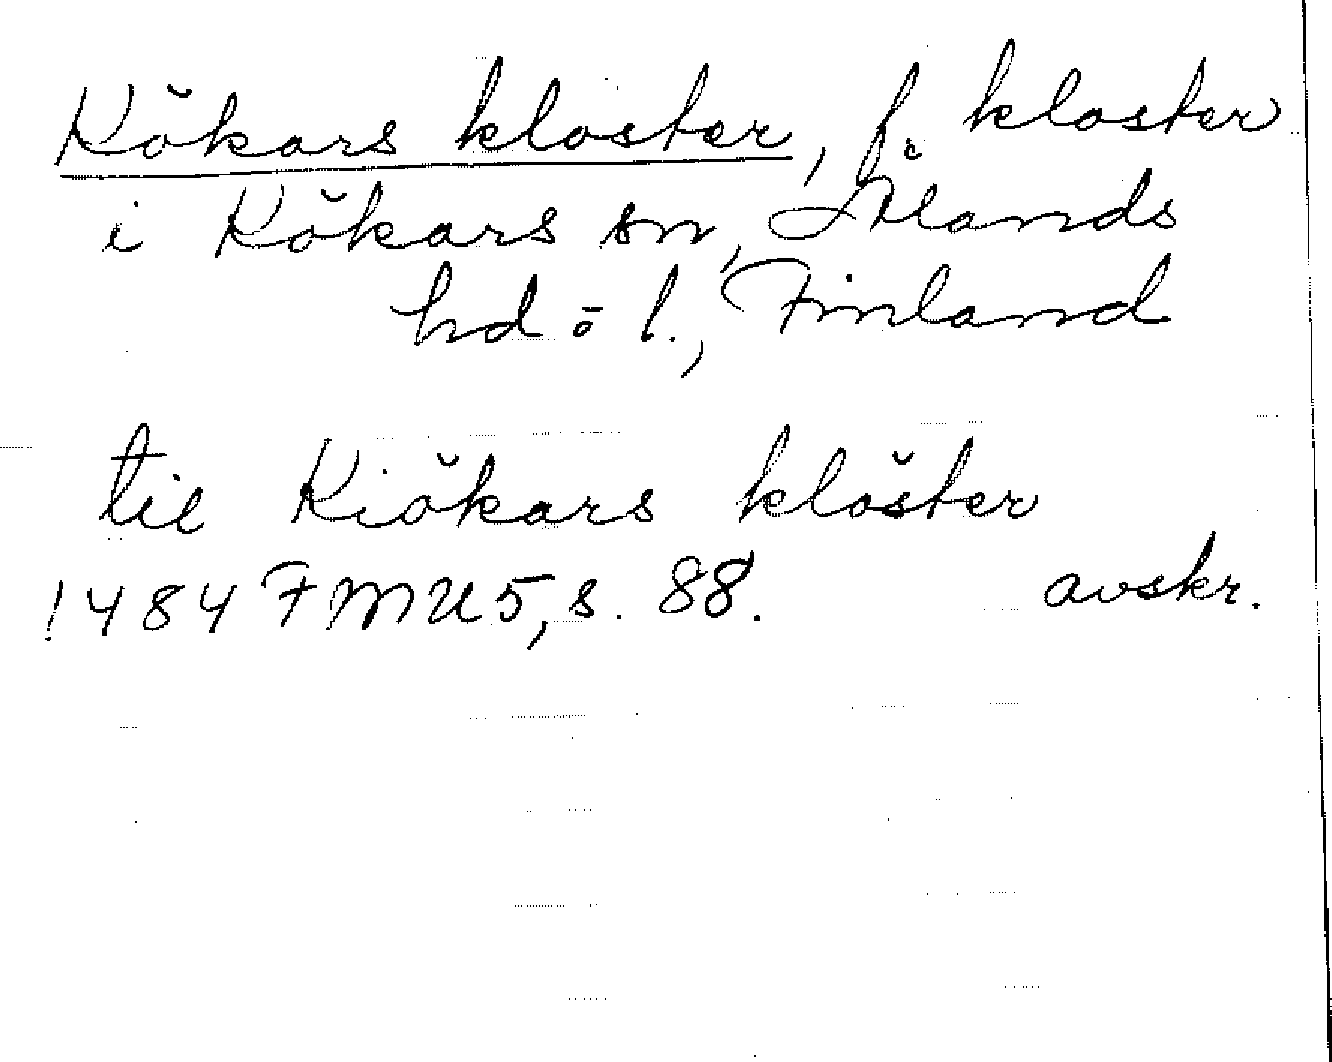 Kökars kloster, f. kloster
i Kökars sn, Ålands
hd o l., Finland
til Kiökars klöster
1484 FMU 5, s. 88. avskr.